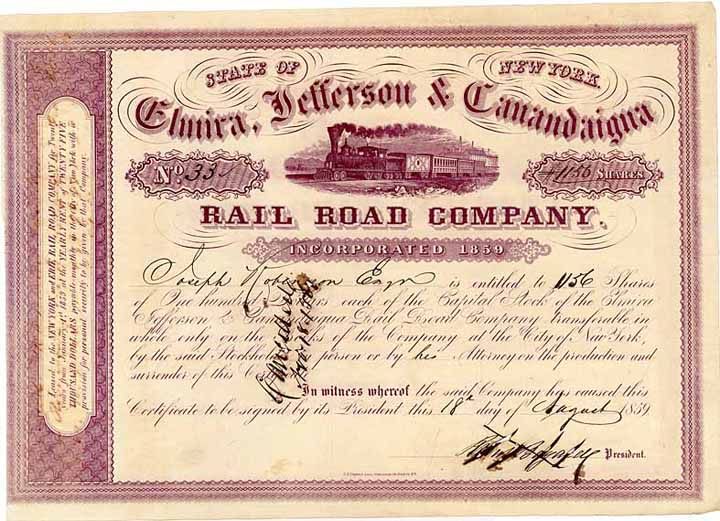 STATE OF NEW YORK
Elmira, Jefferson & Canandaigua
No. 33
1156 SHARES.
RAIL ROAD COMPANY.
INCORPORATED 1859
Joseph Robinson Esqr is entitled to 1156 Shares
of One hundred Dollars each of the Capital Stock of the Elmira
Jefferson & Canandaigua Rail Road Company, transferable in
whole only on the Books of the Company at the City of New York,
by the said Stockholder in person or by his Attorney on the production and
surrender of this
In witness whereof the said Company has caused this
Certificate to be signed by its President this 18th day of August 1859
President.
Leased to the NEW YORK and ERIE RAIL ROAD COMPANY for Twenty
years from January 1st 1859 at the YEARLY RENT of TWENTY FIVE
THOUSAND DOLLARS payable monthly in the City of New York with a
provision for personal security to be given by that Company.
Cancelled